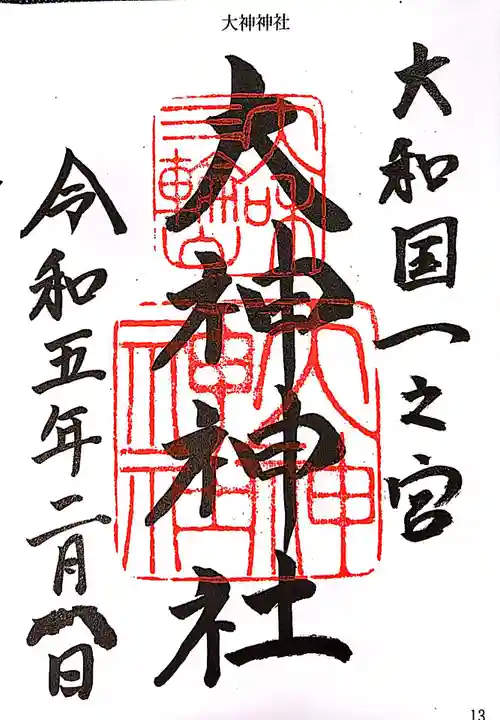 大神神社
大和国一之宮
大和
三輪山
大神神社
大神
神社
令和五年二月八日
13